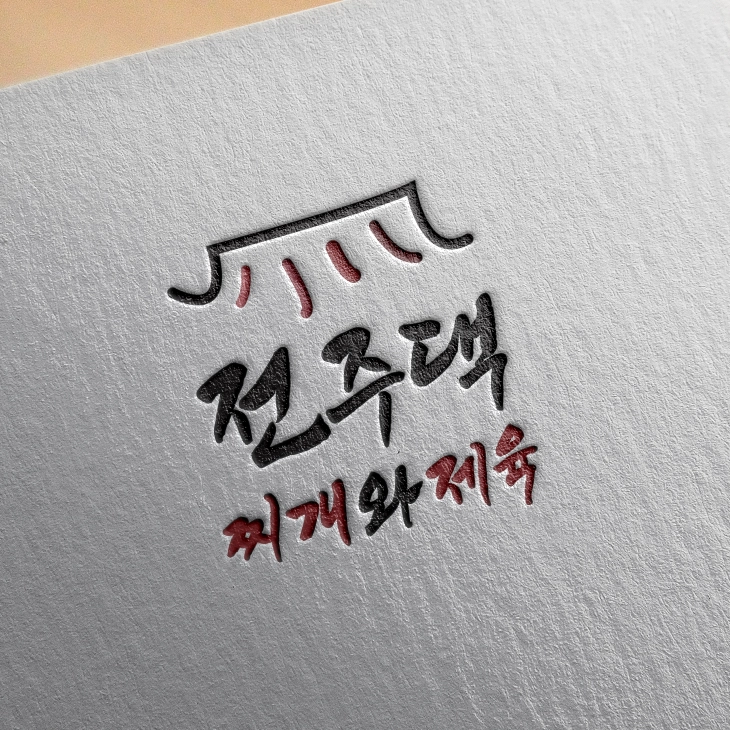 전주댁
찌개와제육